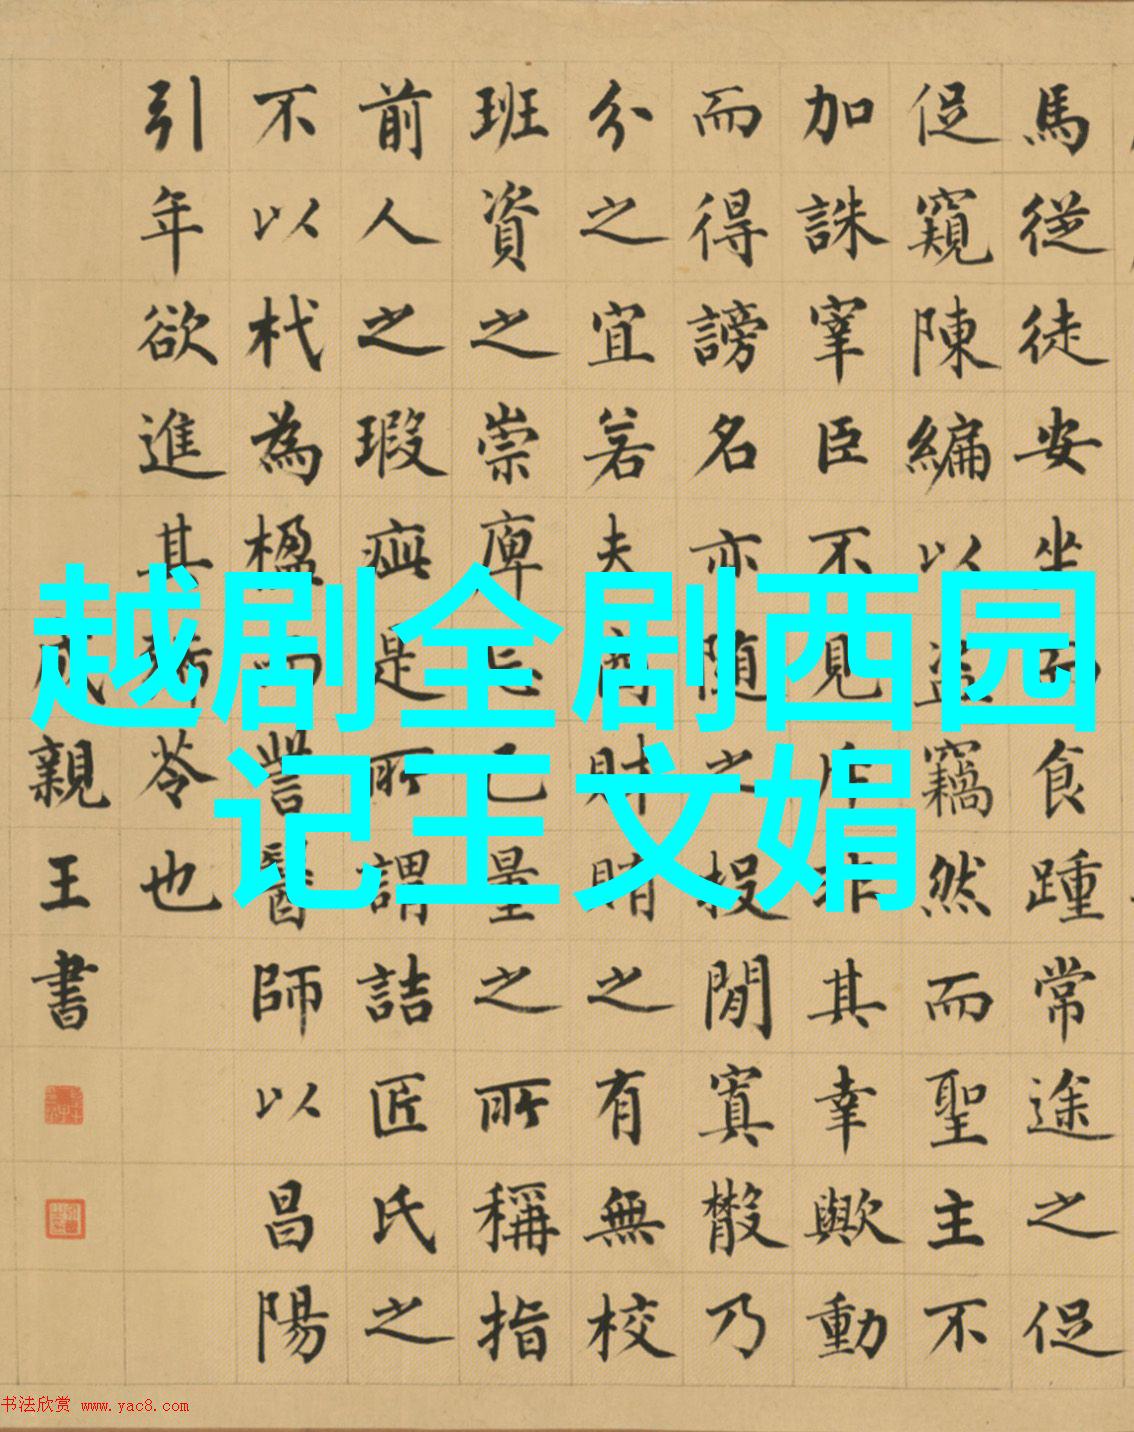 越剧全剧西园
记王文娟
馬從徒安坐而食踵常途之促
促窺陳編以盜竊然而聖主不
加誅宰臣不見斥非其幸歟動
而得謗名亦随之投閒寘散乃
分之宜若夫商財賄之有無校
班資之崇庳忘己量之所稱指
前人之瑕疵是所謂詰匠氏之
不以杙為楹而訾醫師以昌陽
引年欲進其豨苓也
成親王書
书法欣赏 www.yac8.com